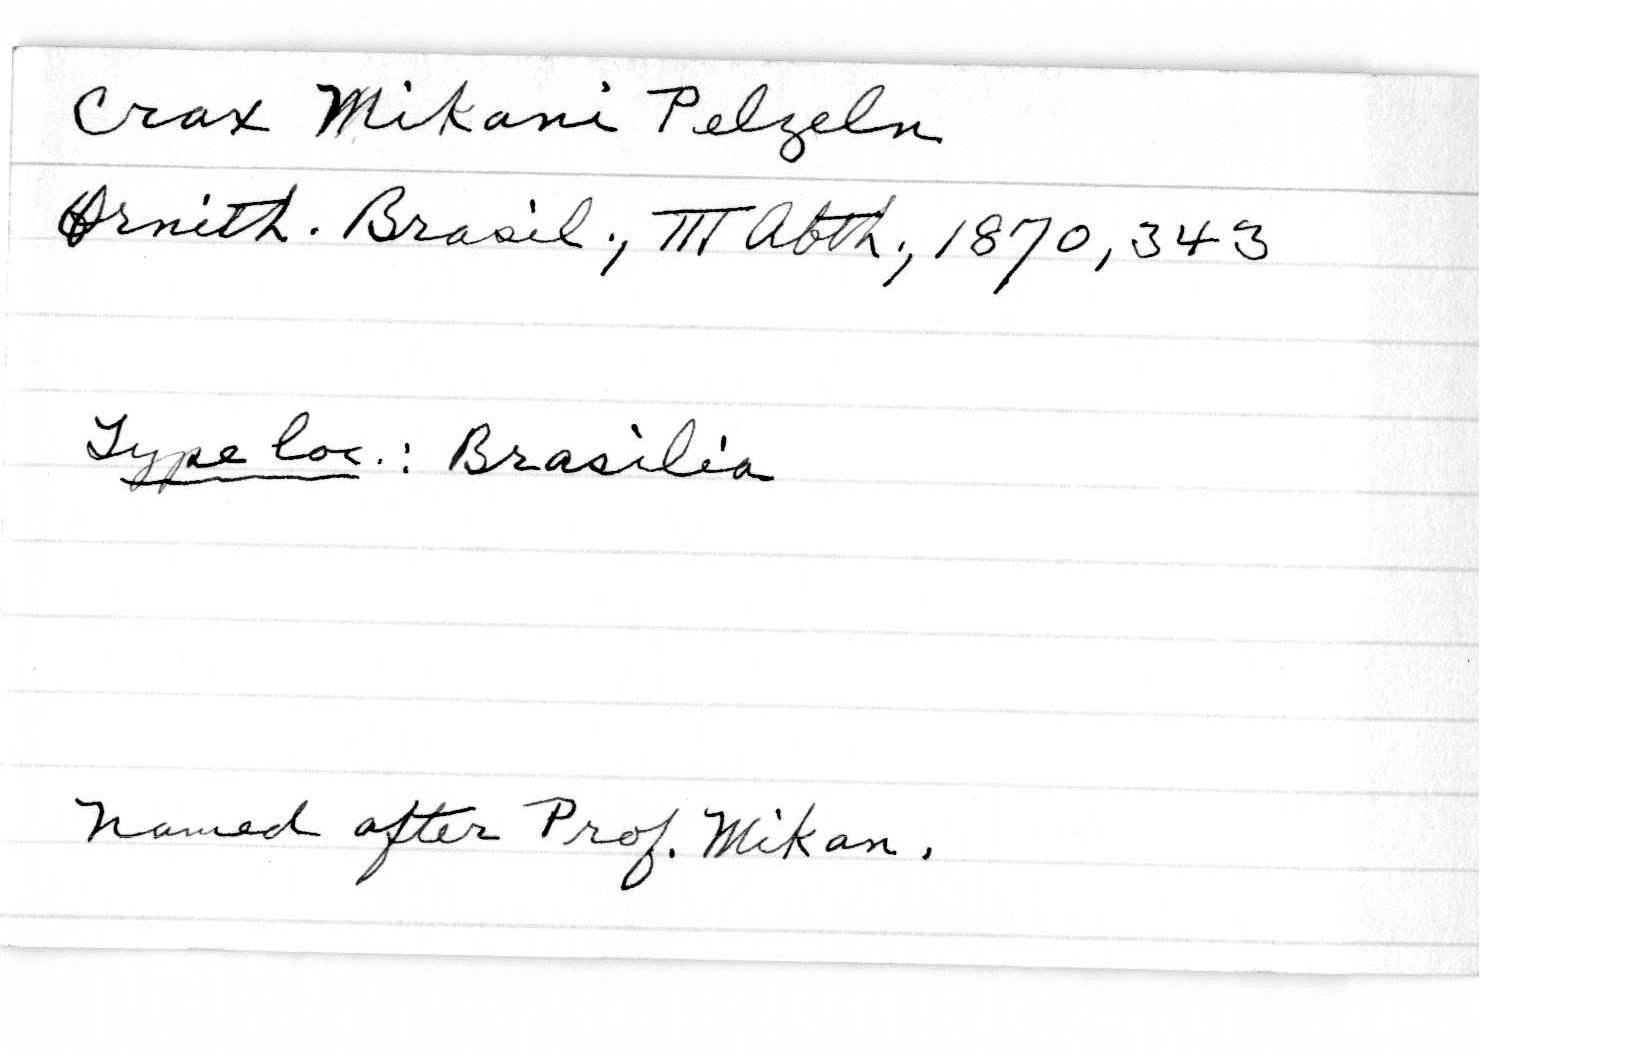 Crax Mikani Pelzeln
Ornith. Brasil., III Abth., 1870, 343
Type loc.: Brasilia
Named after Prof. Mikan.